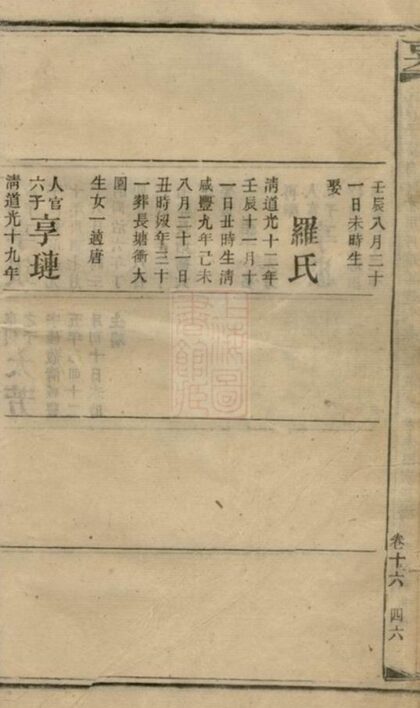 壬辰八月二十
一日未時生
娶
羅氏
清道光十二年
壬辰十一月十
一日丑時生清
咸豐九年己未
八月二十一日
丑時歿年三十
一葬長塘衝大
園
生女一適唐
人官六子享璉
清道光十九年
卷十六 四六